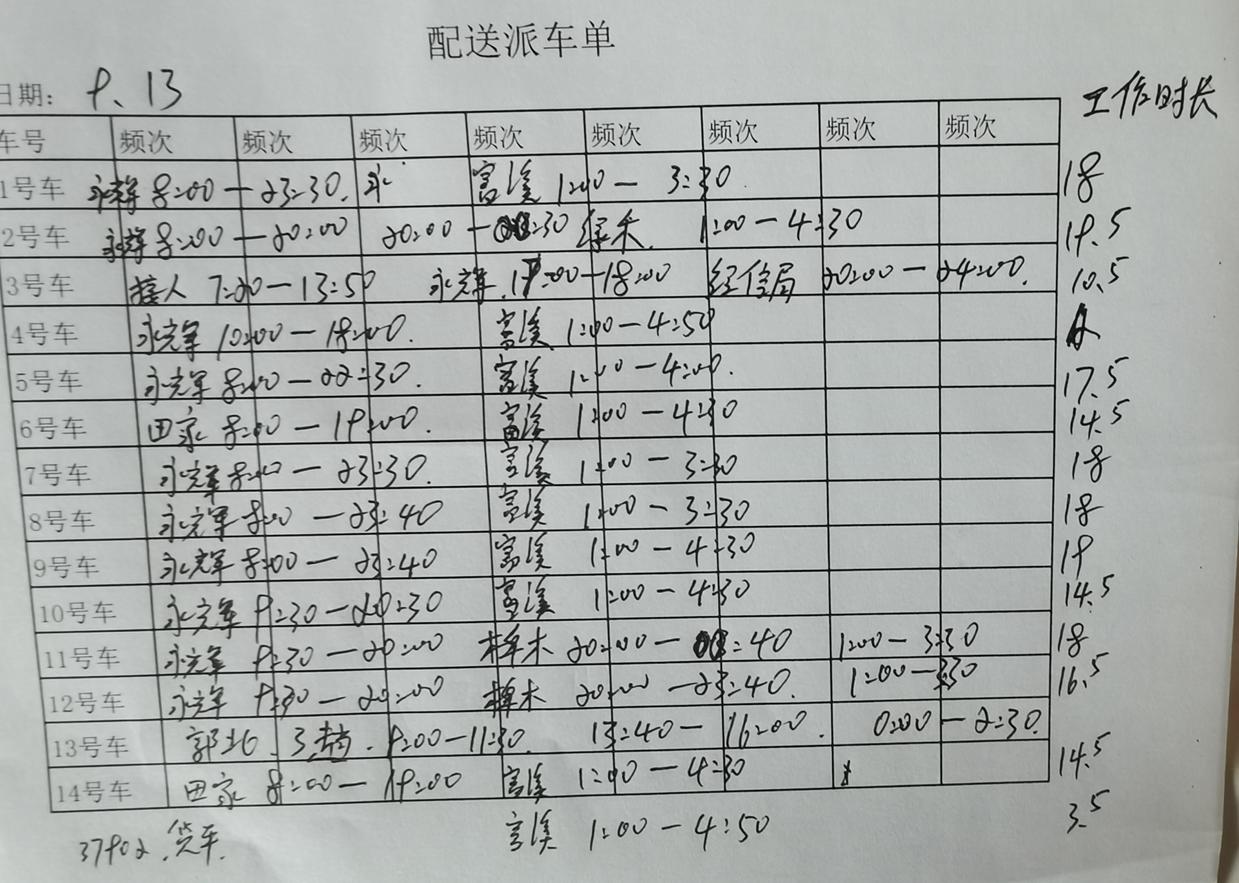 配送派车单
日期： 9、13
工作时长
车号 频次 频次 频次 频次 频次 频次 频次 频次
1号车 永辉 8:00—23:30. 富溪 1:00—3:30 18
2号车 永辉 8:00—20:00 20:00— :30 绿禾 1:00—4:30 19.5
3号车 接人 7:20—13:50 永辉 17:00—18:00 经信局 20:00—24:00. 10.5
4号车 永辉 10:00—18:00. 富溪 1:00—4:50
5号车 永辉 8:00—22:30. 富溪 1:00—4:00. 17.5
6号车 田家 8:00—19:00. 富溪 1:00—4:30 14.5
7号车 永辉 8:00—23:30. 富溪 1:00—3:30 18
8号车 永辉 8:00—23:40 富溪 1:00—3:30 18
9号车 永辉 8:00—23:40 富溪 1:00—4:30 19
10号车 永辉 9:30—20:30 富溪 1:00—4:30 14.5
11号车 永辉 9:30—20:00 桦木 20:00— :40 1:00—3:30 18
12号车 永辉 9:30—20:00 桦木 20:00—23:40. 1:00—3:30 16.5
13号车 郭北 3趟. 9:00—11:30. 13:40—16:00. 0:00—2:30.
14号车 田家 8:00—19:00 富溪 1:00—4:30 14.5
37902.货车. 富溪 1:00—4:50 3.5